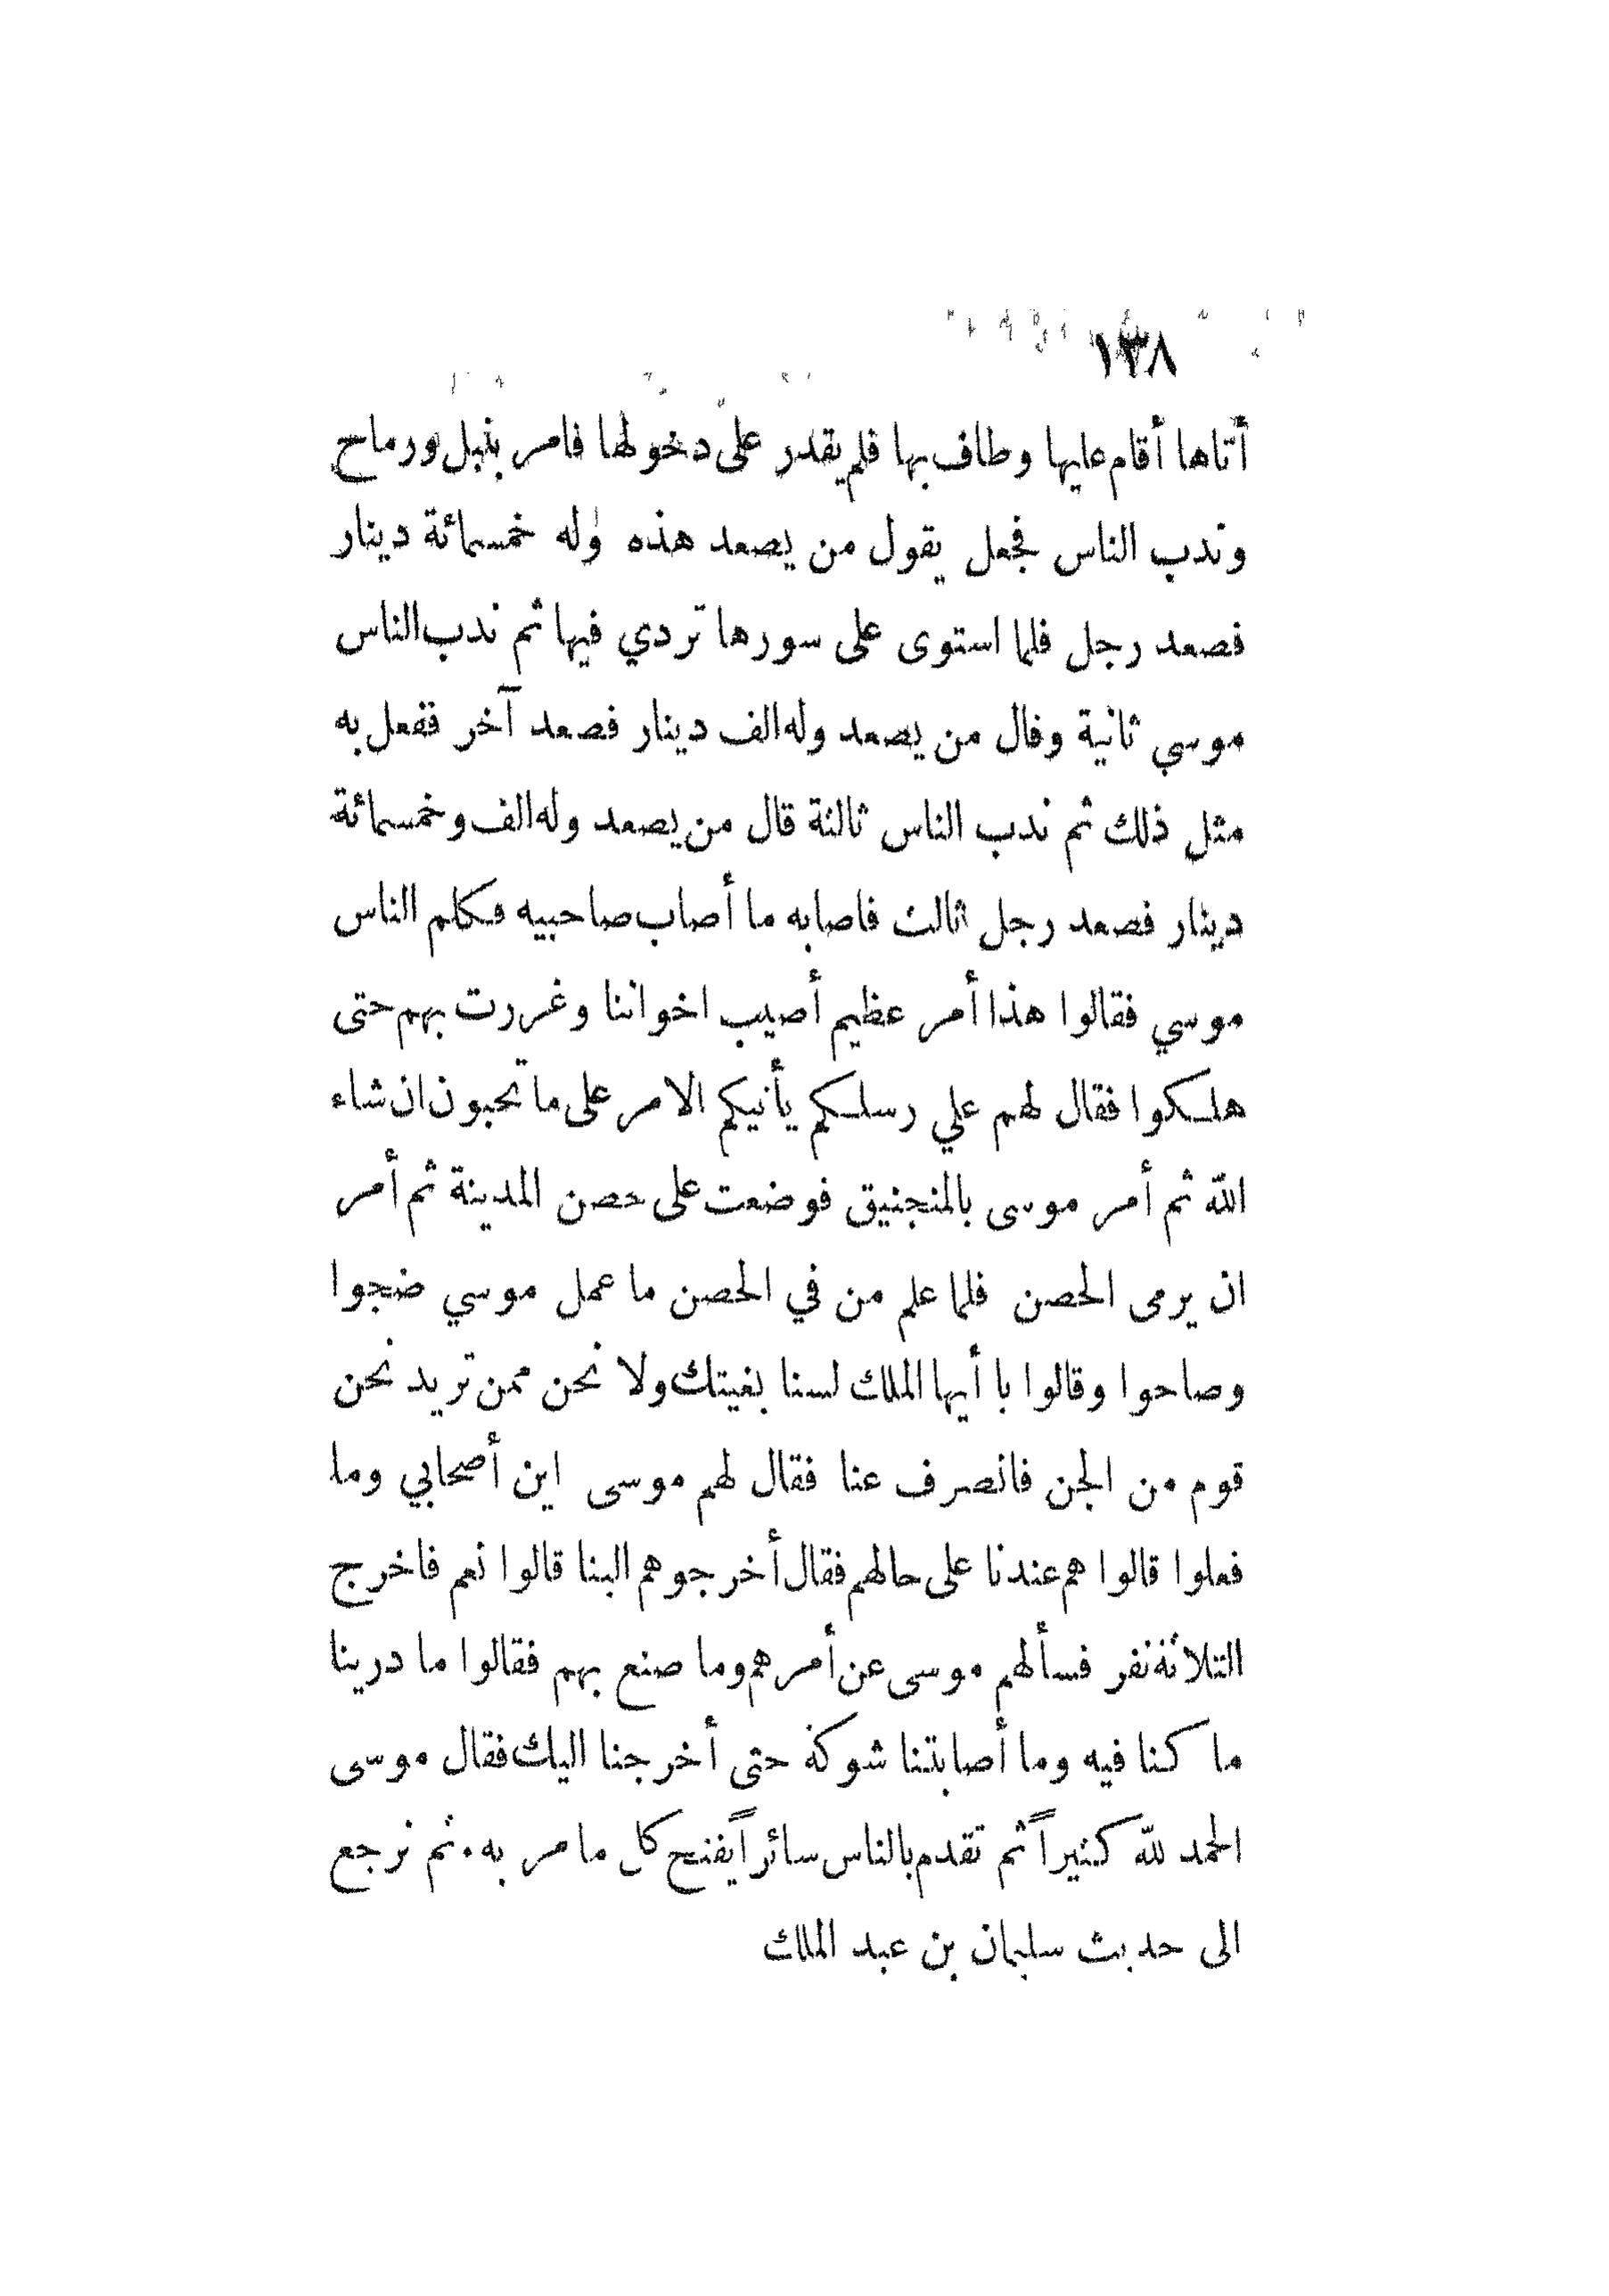 ١٣٨
أتاها أقام عليها وطاف بها فلم يقدر على دخولها فامر بنبل ورماح
وندب الناس فجعل يقول من يصعد هذه وله خمسمائة دينار
فصعد رجل فلما استوى على سورها تردي فيها ثم ندب الناس
موسي ثانية وقال من يصعد وله الف دينار فصعد آخر ففعل به
مثل ذلك ثم ندب الناس ثالثة قال من يصعد وله الف وخمسمائة
دينار فصعد رجل ثالث فاصابه ما أصاب صاحبيه فكلم الناس
موسي فقالوا هذا أمر عظيم أصيب اخواننا وغررت بهم حتى
هلكوا فقال لهم علي رسلكم يأتيكم الامر على ما تحبون ان شاء
الله ثم أمر موسى بالمنجنيق فوضعت على حصن المدينة ثم أمر
ان يرمى الحصن فلما علم من في الحصن ما عمل موسي ضجوا
وصاحوا وقالوا يا أيها الملك لسنا بغيتك ولا نحن ممن تريد نحن
قوم من الجن فانصرف عنا فقال لهم موسى اين أصحابي وما
فعلوا قالوا هم عندنا على حالهم فقال أخرجوهم الينا قالوا نعم فاخرج
الثلاثة نفر فسألهم موسى عن أمرهم وما صنع بهم فقالوا ما درينا
ما كنا فيه وما أصابتنا شوكة حتى أخرجنا اليك فقال موسى
الحمد لله كثيراً ثم تقدم بالناس سائراً يفتح كل ما مر به. ثم نرجع
الى حديث سليمان بن عبد الملك